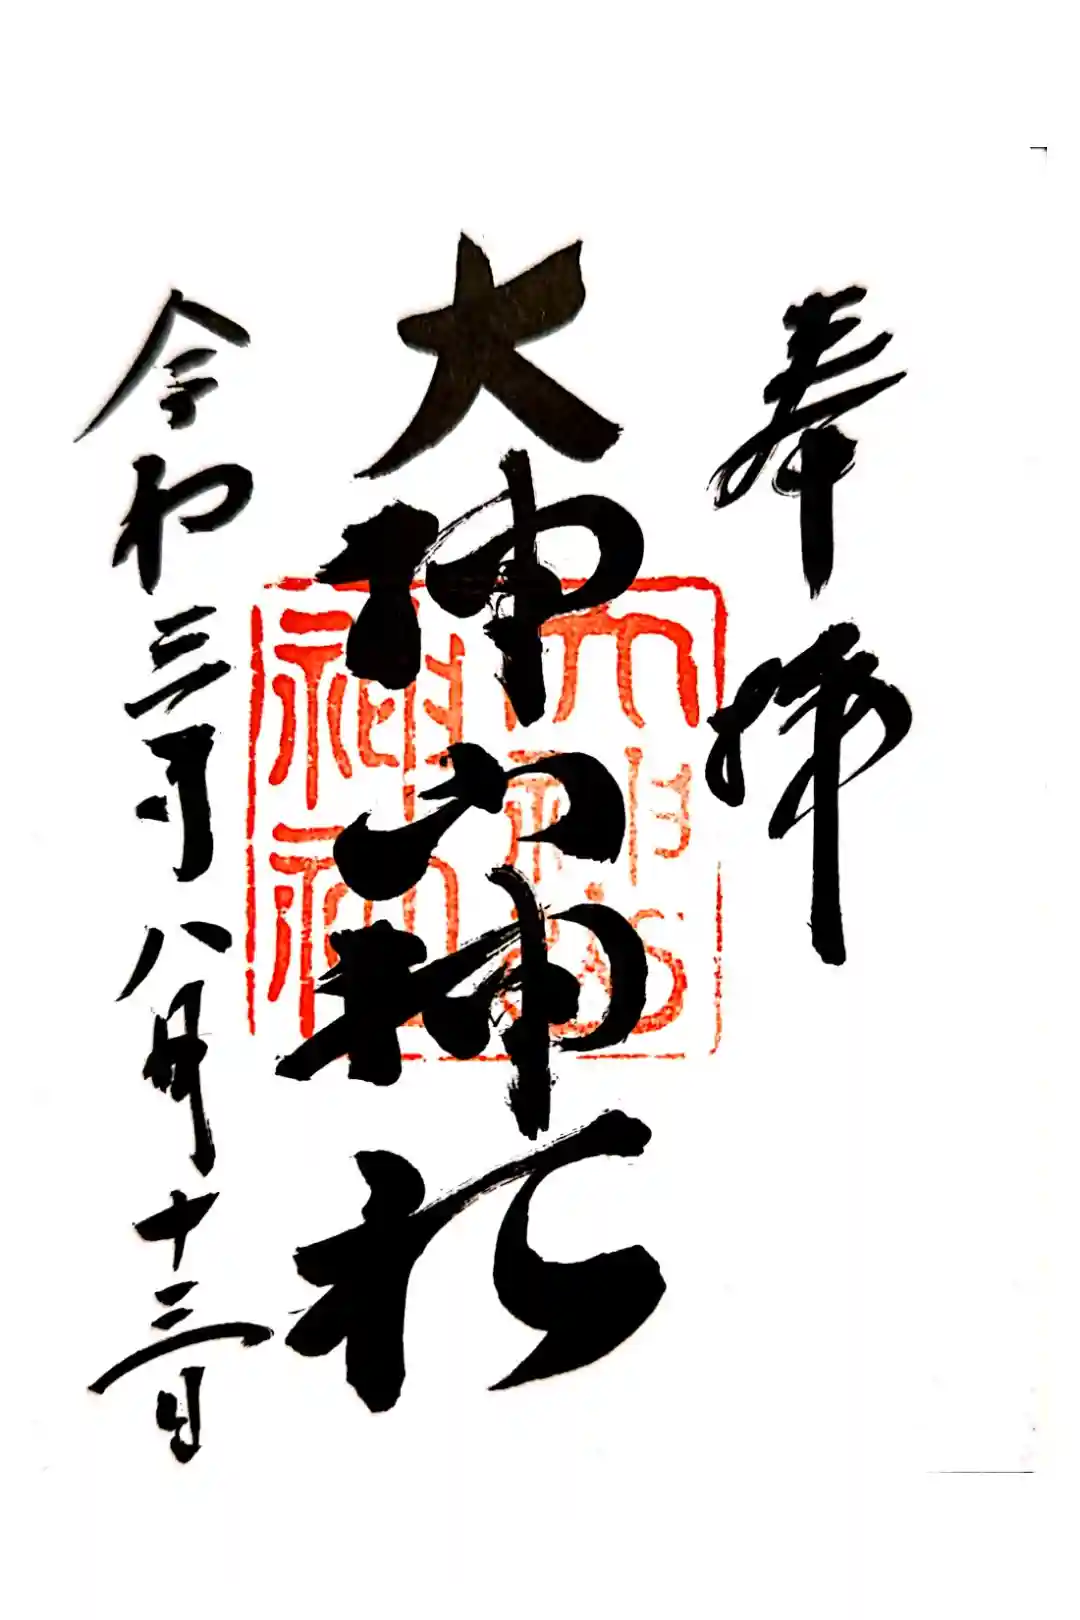 奉拝
大神山神社
令和三年八月十三日
大神山
神社